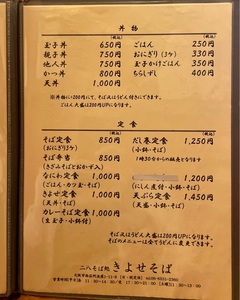 丼物
(税込)
玉子丼 650円
親子丼 750円
他人丼 750円
かつ丼 800円
天丼 1,000円
(税込)
ごはん 250円
おにぎり(3ヶ) 330円
玉子かけごはん 350円
ちらしずし 400円
※丼物に+200円にて、そば又はうどん付きにできます。
ごはん大盛は100円UPになります。
定食
(税込)
そば定食 850円
(おにぎり3ヶ)
そば弁当 850円
なにわ定食 1,000円
(ごはん・カツ・そば)
きよせ定食 1,000円
(天丼・そば)
カレーそば定食 1,000円
(生玉子・小鉢付)
(税込)
だし巻定食 1,250円
(小鉢・そば)
1,200円
(にしん煮付・小鉢・そば)
天ぷら定食 1,450円
(天盛・小鉢・そば)
そば又はうどん大盛は200円UPになります。
そばのメニューは全てうどんに変更できます。
二八そば処 きよせそば